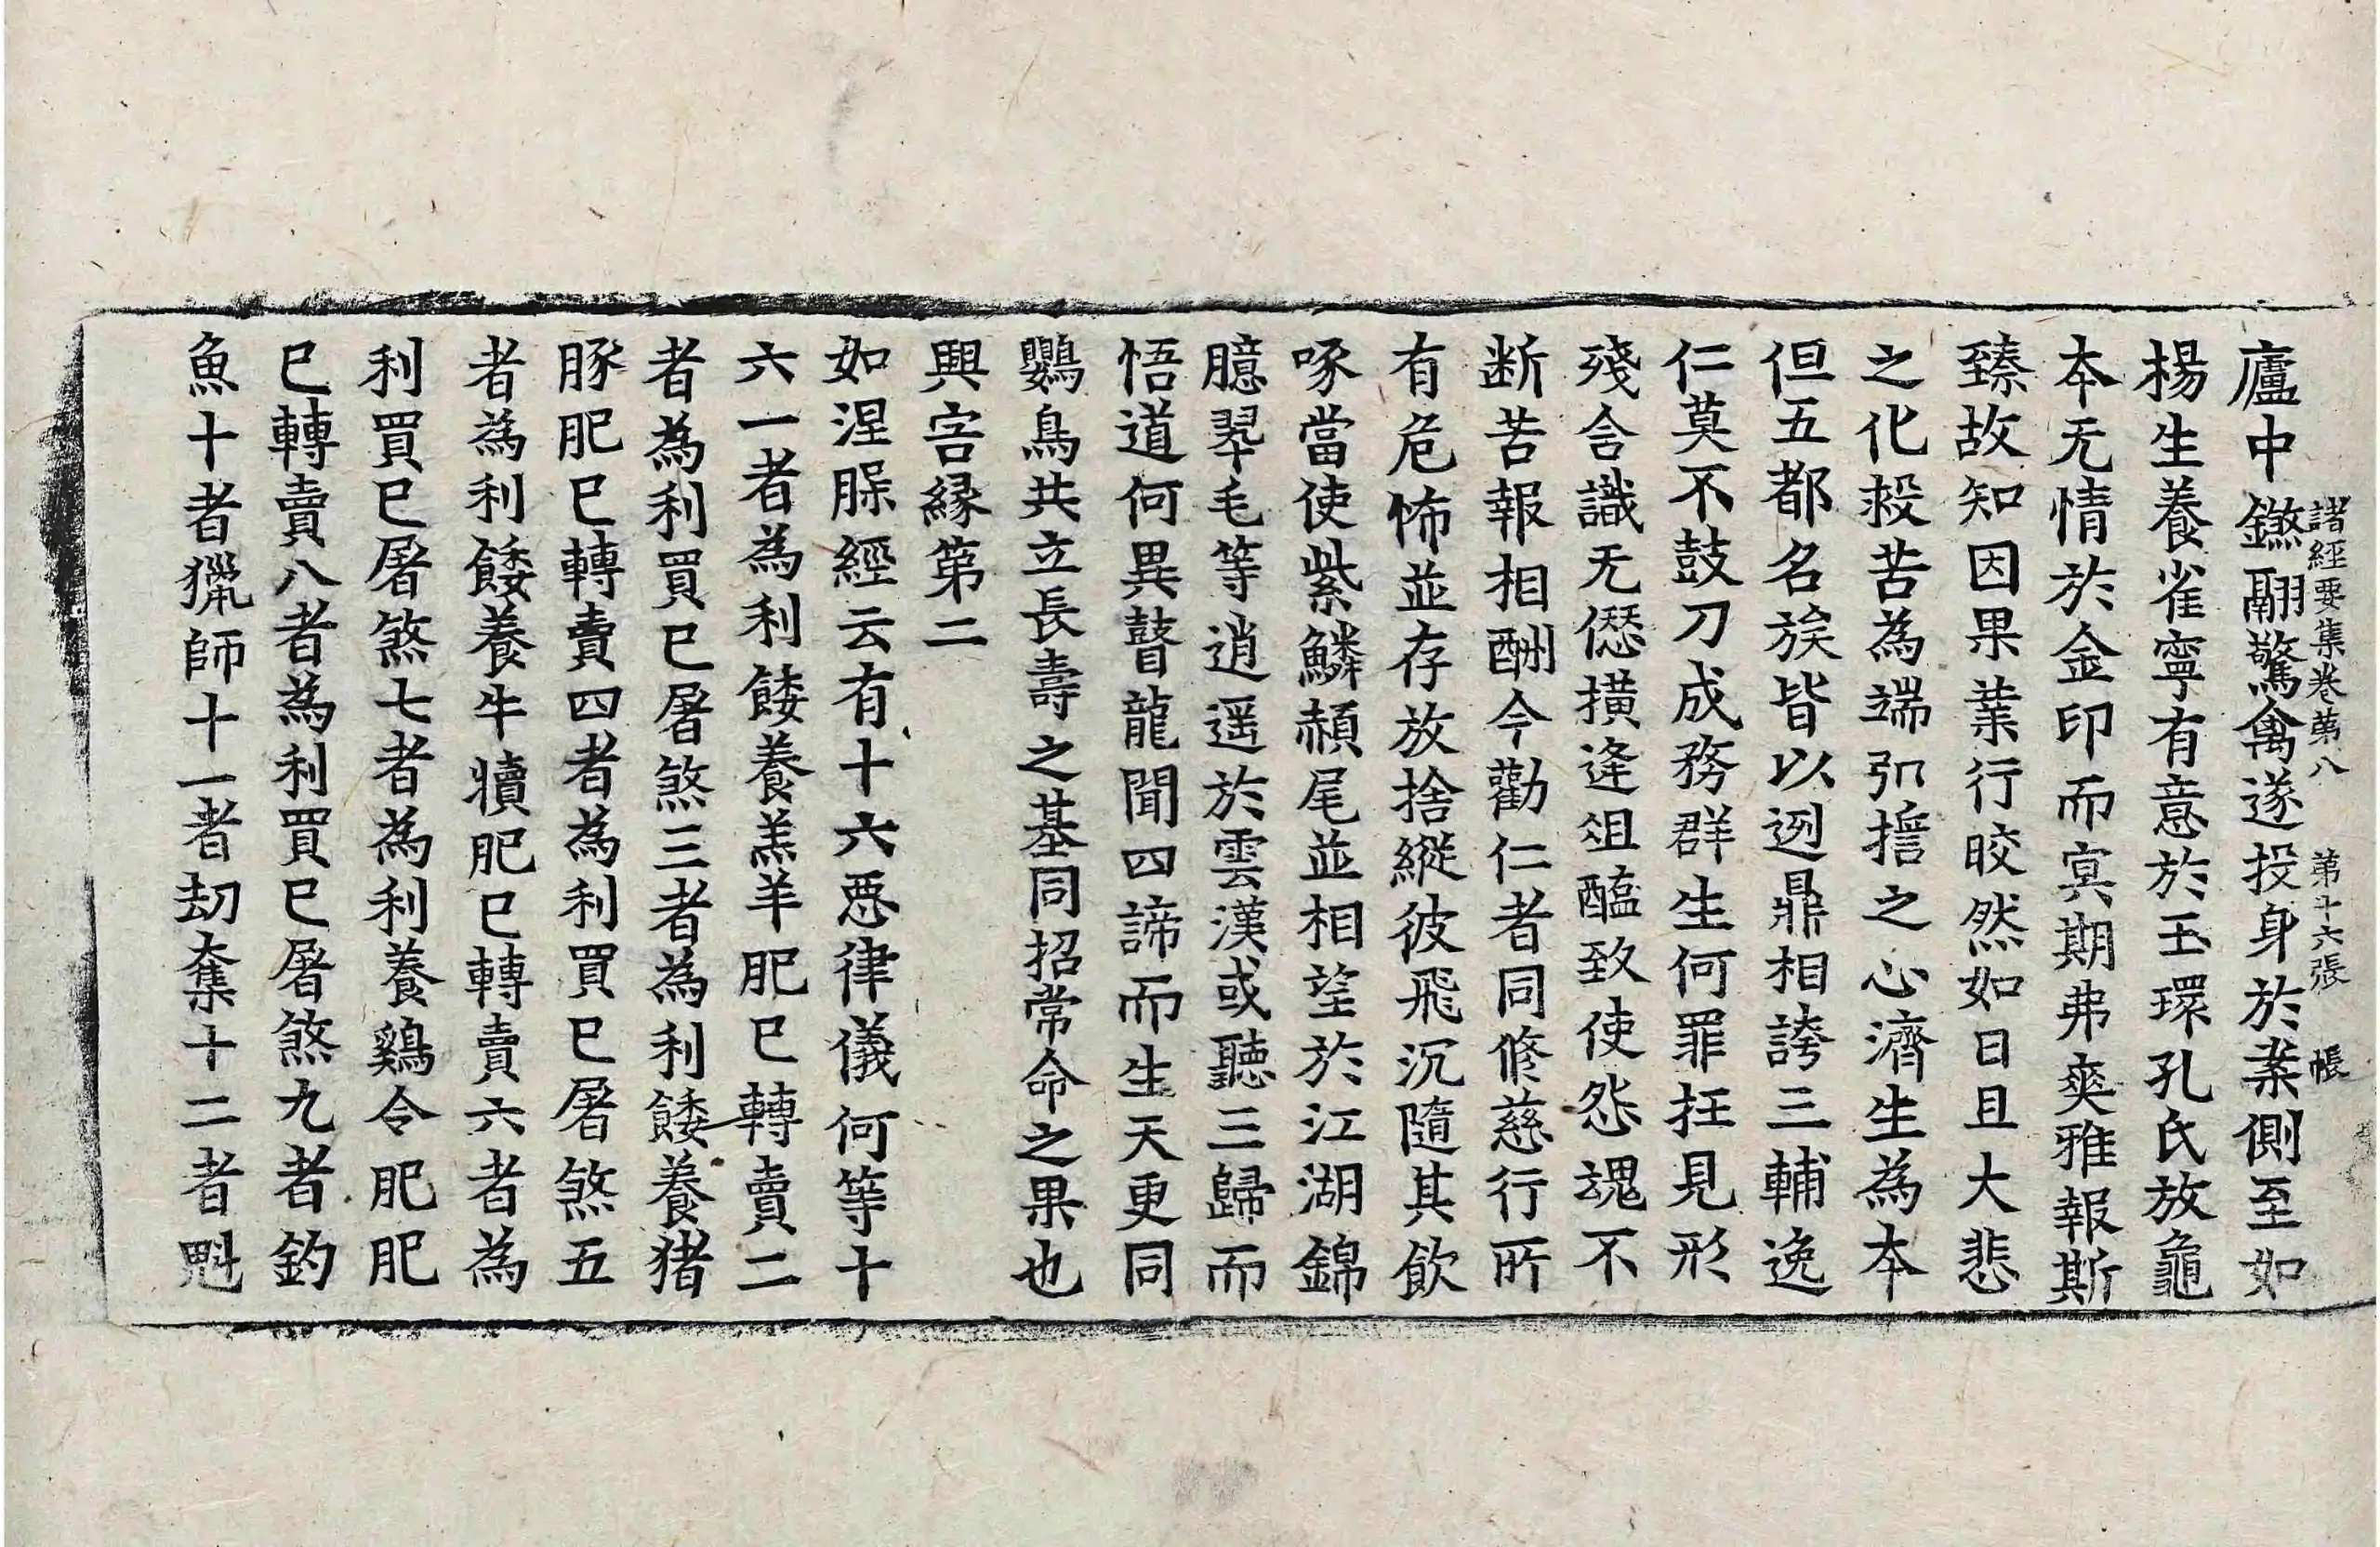 諸經要集卷第八 第十六張 帳
廬中鷦翮驚禽遂投身於案側至如
楊生養雀寧有意於玉環孔氏放龜
本无情於金印而㝠期弗爽雅報斯
臻故知因果業行皎然如日且大悲
之化救苦為端弘誓之心濟生為本
但五都名族皆以迾鼎相誇三輔逸
仁莫不鼓刀成務群生何罪抂見形
殘含識无僁撗逢俎醢致使怨魂不
断苦報相酬今勸仁者同修慈行所
有危怖並存放捨縱彼飛沉隨其飲
啄當使紫鱗頳尾並相望於江湖錦
臆翠毛等逍遥於雲漢或聽三歸而
悟道何異瞽龍聞四諦而生天更同
鸚鳥共立長壽之基同招常命之果也
興害緣第二
如涅槃經云有十六惡律儀何等十
六一者為利餧養羔羊肥已轉賣二
者為利買已屠煞三者為利餧養猪
豚肥已轉賣四者為利買已屠煞五
者為利餧養牛犢肥已轉賣六者為
利買已屠煞七者為利養鷄令肥肥
已轉賣八者為利買已屠煞九者釣
魚十者獵師十一者劫奪十二者魁